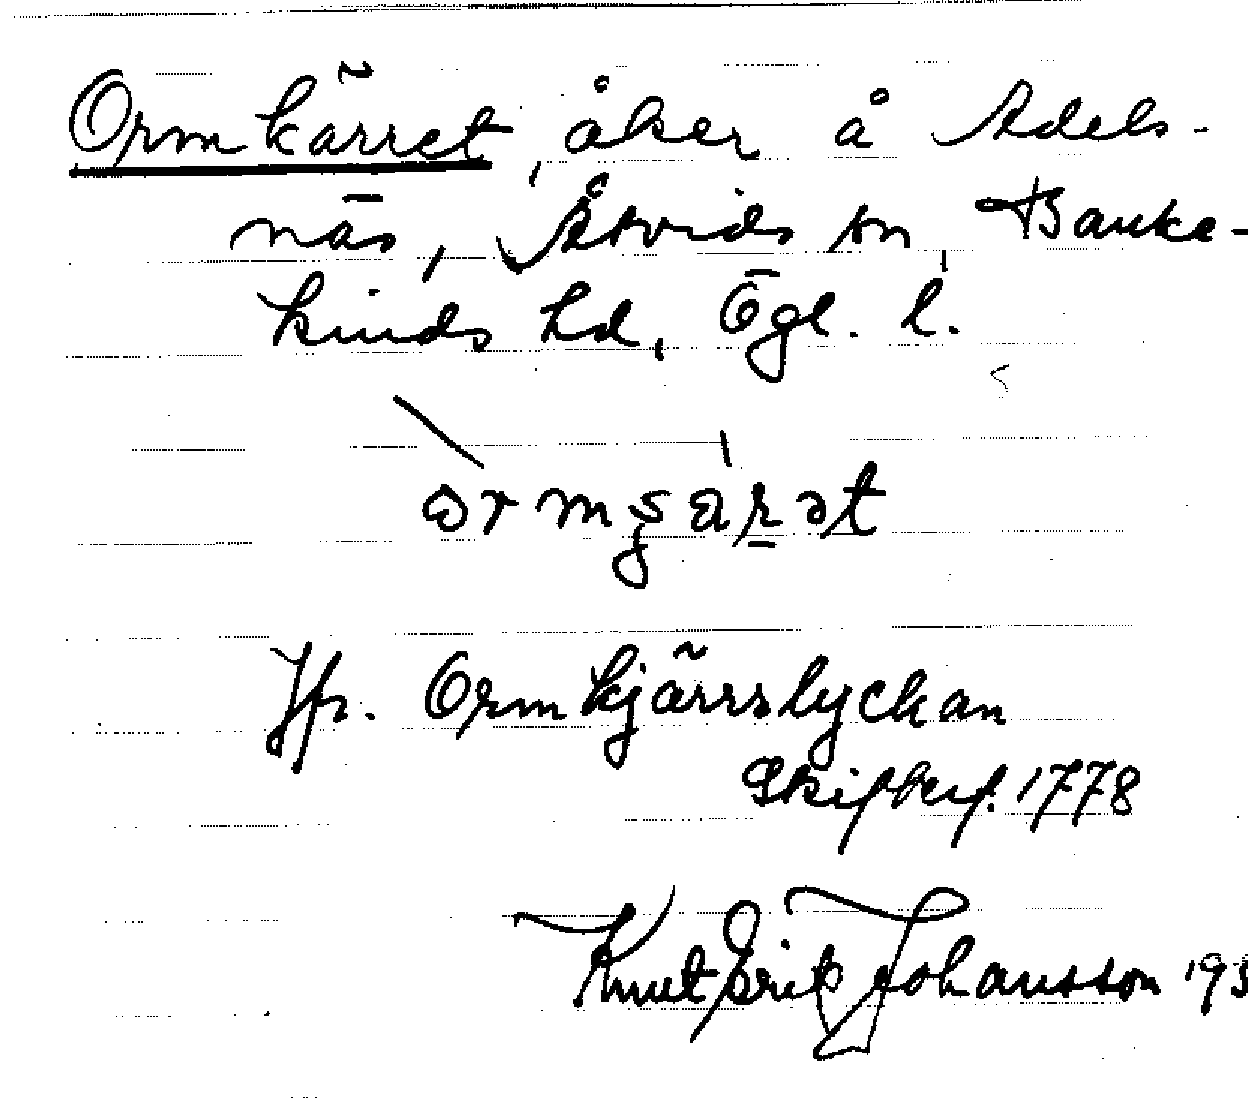 Ormkärret, åker å Adels-
näs, Åtvids sn, Banke-
kinds hd, Ögl. l.
Jfr. Ormkjärrslyckan
Skifterf. 1778
Knut Erik Johansson 193